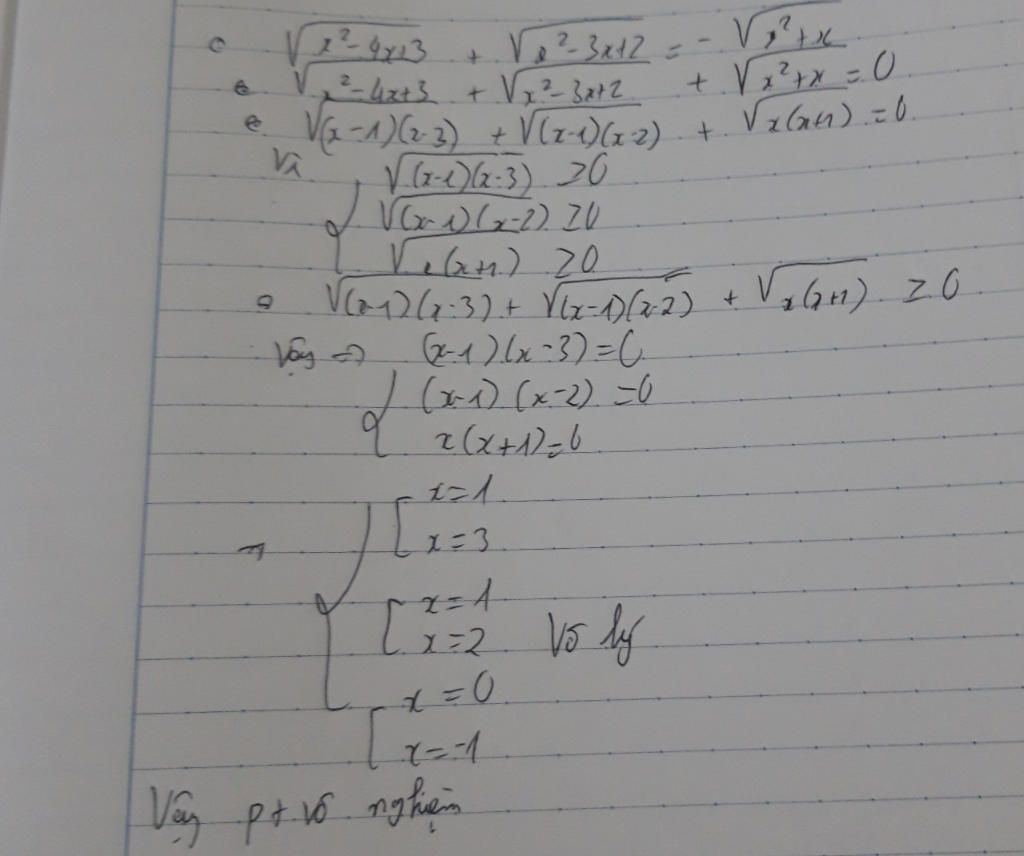 √(x²-4x+3) + √(x²-3x+2) = - √(x²+x)
⇔ √(x²-4x+3) + √(x²-3x+2) + √(x²+x) = 0
⇔ √((x-1)(x-3)) + √((x-1)(x-2)) + √(x(x+1)) = 0
Vì { √((x-1)(x-3)) ≥ 0
√((x-1)(x-2)) ≥ 0
√(x(x+1)) ≥ 0
⇒ √((x-1)(x-3)) + √((x-1)(x-2)) + √(x(x+1)) ≥ 0
Vậy ⇒ { (x-1)(x-3) = 0
(x-1)(x-2) = 0
x(x+1) = 0
⇒ { [ x = 1
x = 3
[ x = 1
x = 2 Vô lý
[ x = 0
x = -1
Vậy pt vô nghiệm